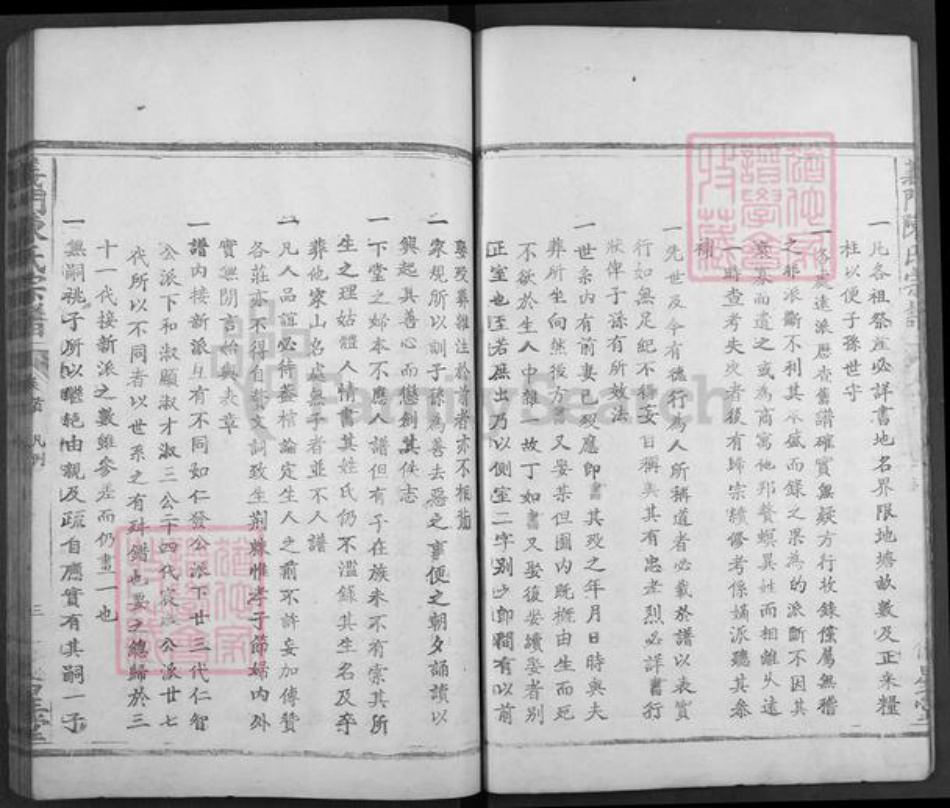 義門陳氏宗譜
一凡各祖祭產必詳書地名界限地塘畝數及正米糧
柱以便子孫世守
一各處遠派歷查舊譜確實無疑方行收錄僅屬無稽
之非派斷不利其 盛而錄之果為的派斷不因其
衰寡而遺之或為商寓他邦贅螟異姓而相離久遠
一時查考失次者後有歸宗續修考係嫡派聽其叅
補
一先世及今有德行為人所稱道者必載於譜以表實
行如無足紀不得妄自稱美其有忠孝烈必詳書行
狀俾子孫有所效法
一世系內有前妻已歿應即書其歿之年月日時與夫
葬所坐向然後方書又娶某但圖內既概由生而死
不欲於生人中雜一故丁如書又娶復娶續娶者別
正室也至若庶出乃以側室二字別之即間有以前
娶歿葬雜注於首者亦不相
一家規所以訓子孫為善去惡之事便之朝夕誦讀以
興起其善心而懲創其佚志
一下堂之婦本不應入譜但有子在族未不有索其所
生之理姑體人情書其姓氏仍不濫錄其生名及卒
葬他家山名處無子者並不入譜
一凡人品誼必待蓋棺論定生人之前不許妄加傳贊
各莊亦不得自 文詞致生荊棘惟孝子節婦內外
實無閒言始與表章
一譜內接新派互有不同如仁發公派下廿三代仁智
公派下和淑顯淑才淑三公二十四代 公派廿七
代所以不同者以世系之有舛錯也要之總歸於三
十一代接新派之數雖參差而仍畫一也
一無嗣祧子所以繼絕由親及疏自應實有其嗣一子
義門陳氏宗譜
凡例
三